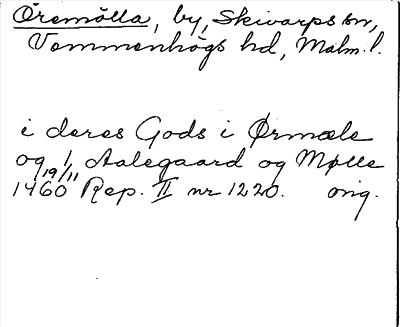 Öremölla, by, Skivarps sn,
Vemmenhögs hd, Malm. l.
i deres Gods i Ørmæle
og 1 Aalegaard og Mølle
19/11
1460 Rep. II nr 1220. orig.